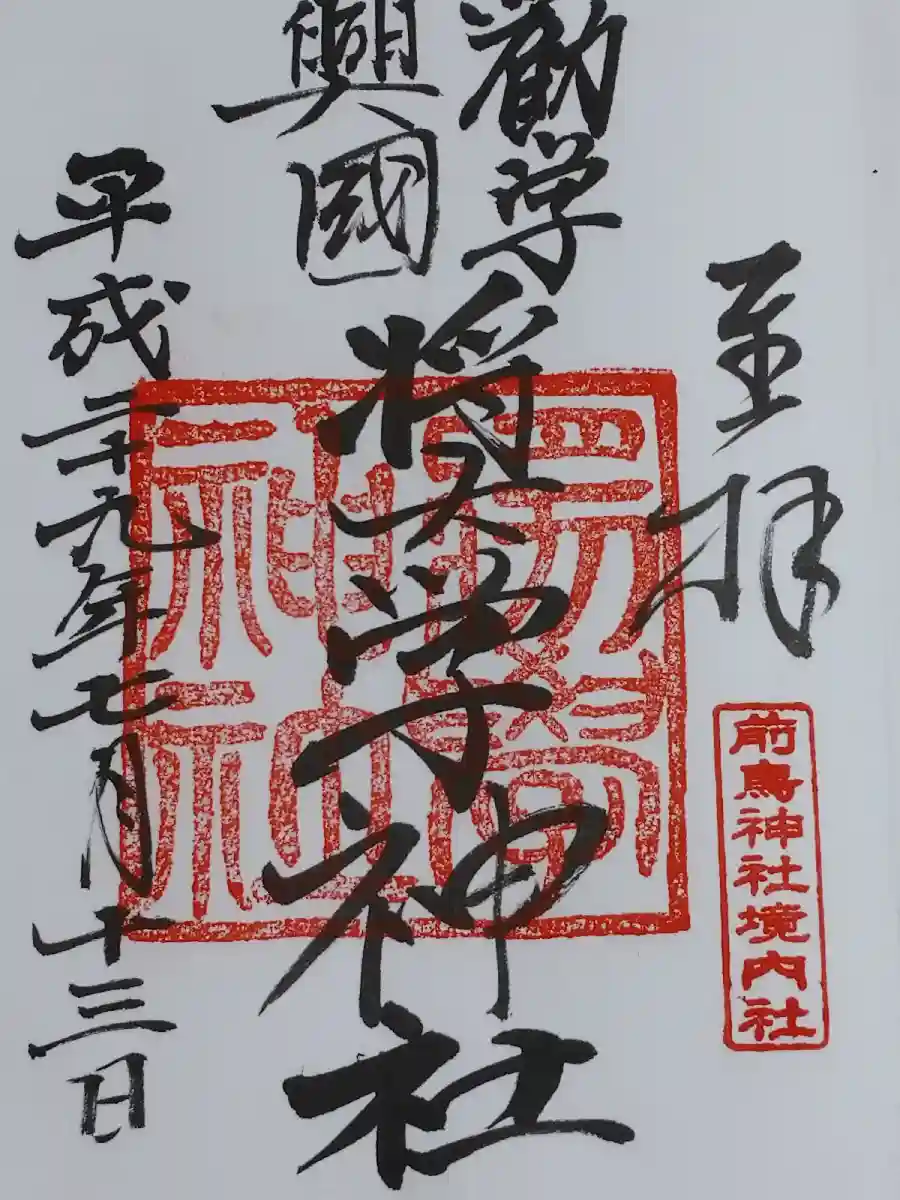 至拝
前鳥神社境内社
勧学
興國
奨学神社
平成二十九年七月十三日
神社